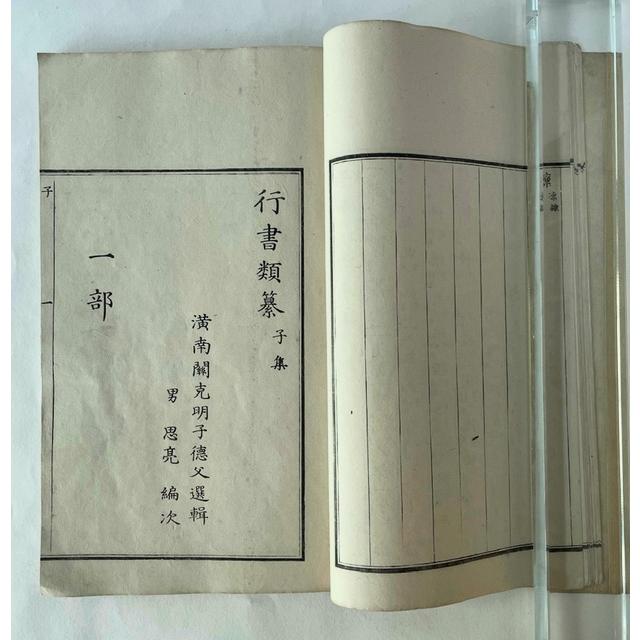 行書類纂 子集
潢南關克明子德父選輯
男 思亮 編次
一部
子 一